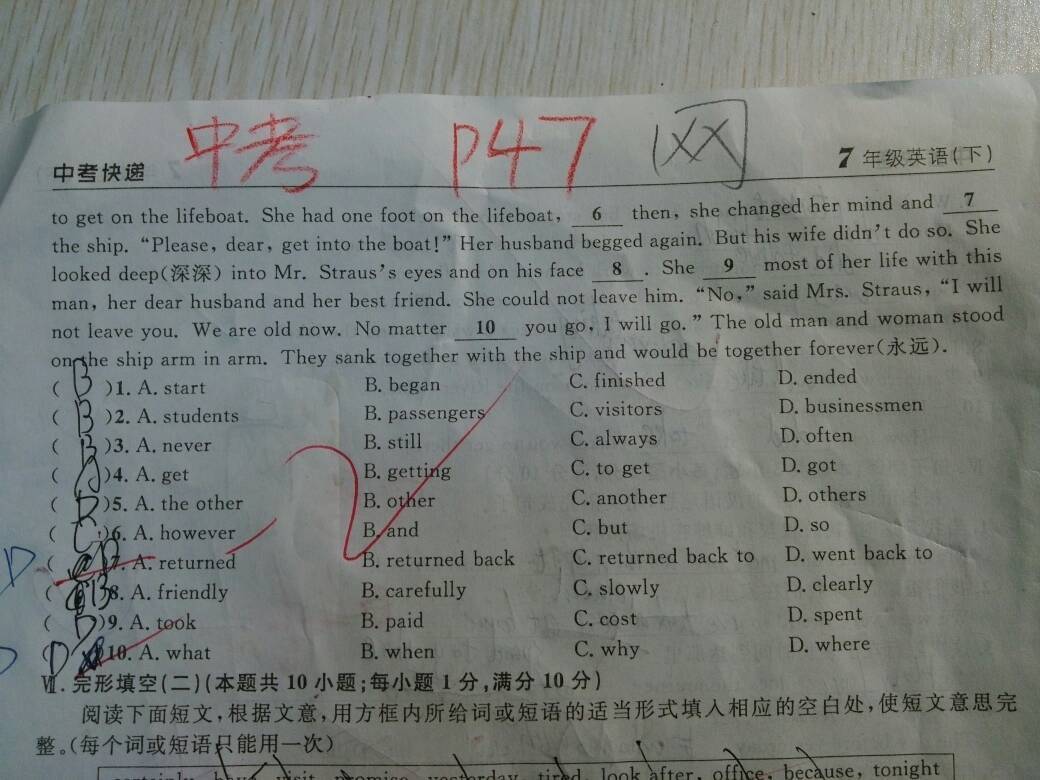 中考 P47 网
中考快递 7年级英语(下)
to get on the lifeboat. She had one foot on the lifeboat, 6 then, she changed her mind and 7
the ship. “Please, dear, get into the boat!” Her husband begged again. But his wife didn't do so. She
looked deep(深深) into Mr. Straus's eyes and on his face 8 . She 9 most of her life with this
man, her dear husband and her best friend. She could not leave him. “No,” said Mrs. Straus, “I will
not leave you. We are old now. No matter 10 you go, I will go.” The old man and woman stood
on the ship arm in arm. They sank together with the ship and would be together forever(永远).
( B )1. A. start B. began C. finished D. ended
( B )2. A. students B. passengers C. visitors D. businessmen
( B )3. A. never B. still C. always D. often
( )4. A. get B. getting C. to get D. got
( D )5. A. the other B. other C. another D. others
( C )6. A. however B. and C. but D. so
D ( )7. A. returned B. returned back C. returned back to D. went back to
( B )8. A. friendly B. carefully C. slowly D. clearly
( D )9. A. took B. paid C. cost D. spent
( D )10. A. what B. when C. why D. where
Ⅶ. 完形填空(二)(本题共10小题;每小题1分,满分10分)
阅读下面短文,根据文意,用方框内所给词或短语的适当形式填入相应的空白处,使短文意思完
整。(每个词或短语只能用一次)
certainly have visit promise yesterday tired look after, office, because, tonight